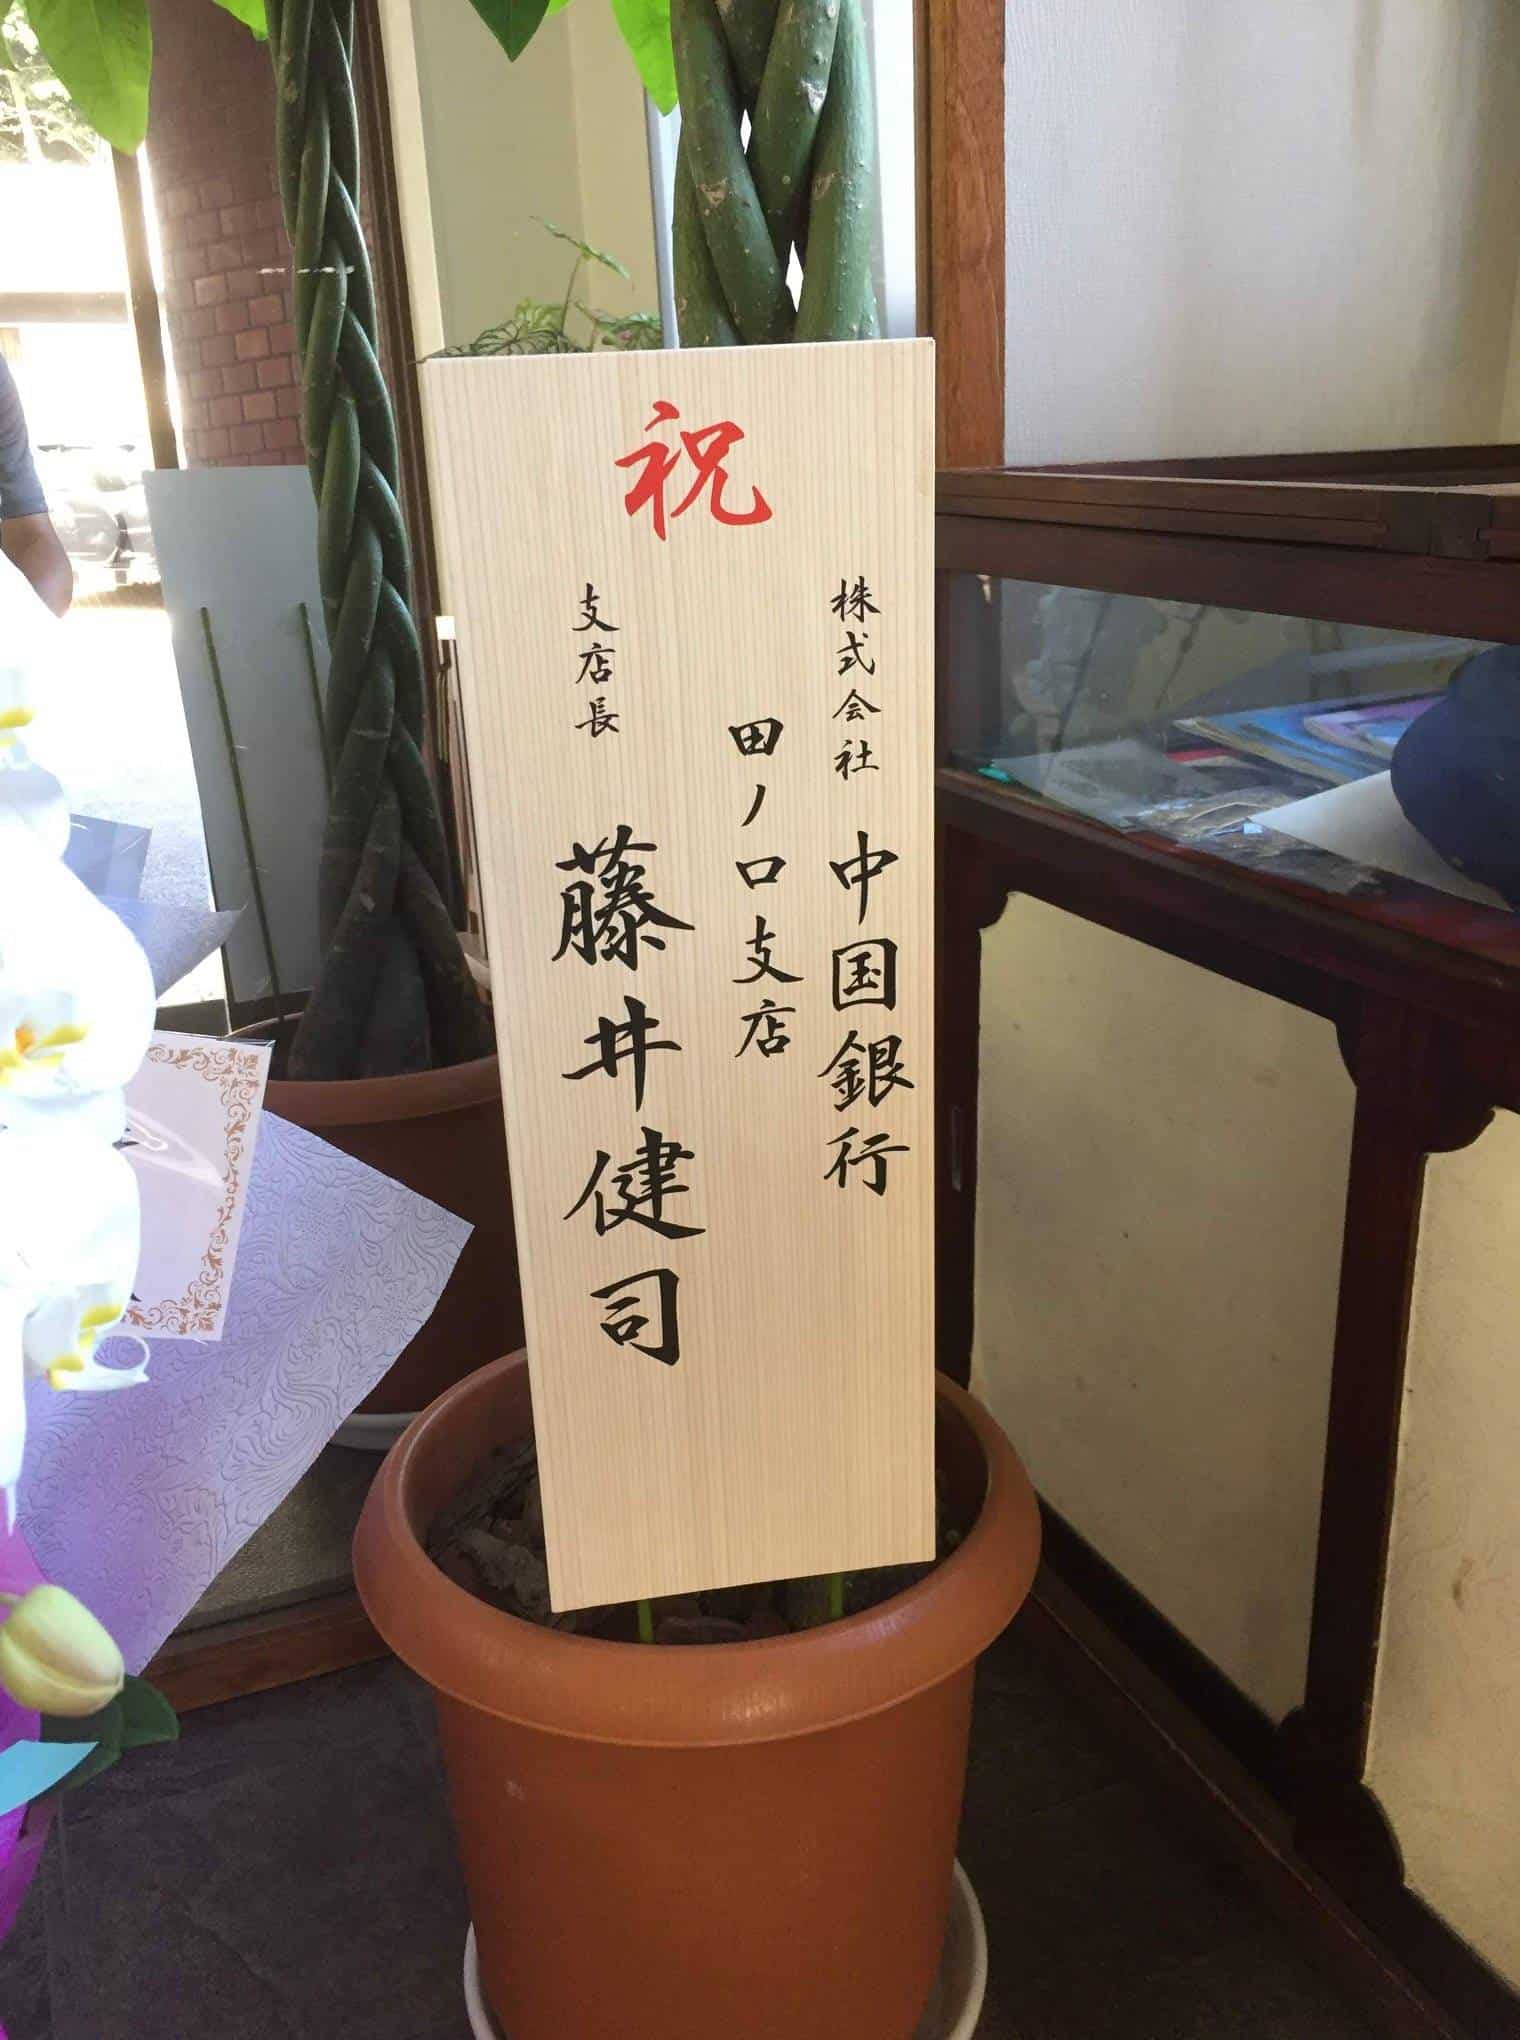 祝
株式会社 中国銀行
田ノ口支店
支店長 藤井健司